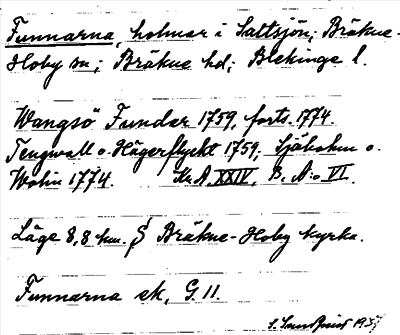 Funnarna, holmar i Saltsjön; Bräkne-
Hoby sn; Bräkne hd; Blekinge l.
Wangsö Fundar 1759, forts. 1774.
Tengwall o. Hägerflycht 1759; Sjöbohm o.
Wolin 1774. K.A. XXIV. B. A:o VI.
Läge 8,8 km. S Bräkne-Hoby kyrka.
Funnarna ek, G. 11.
1937